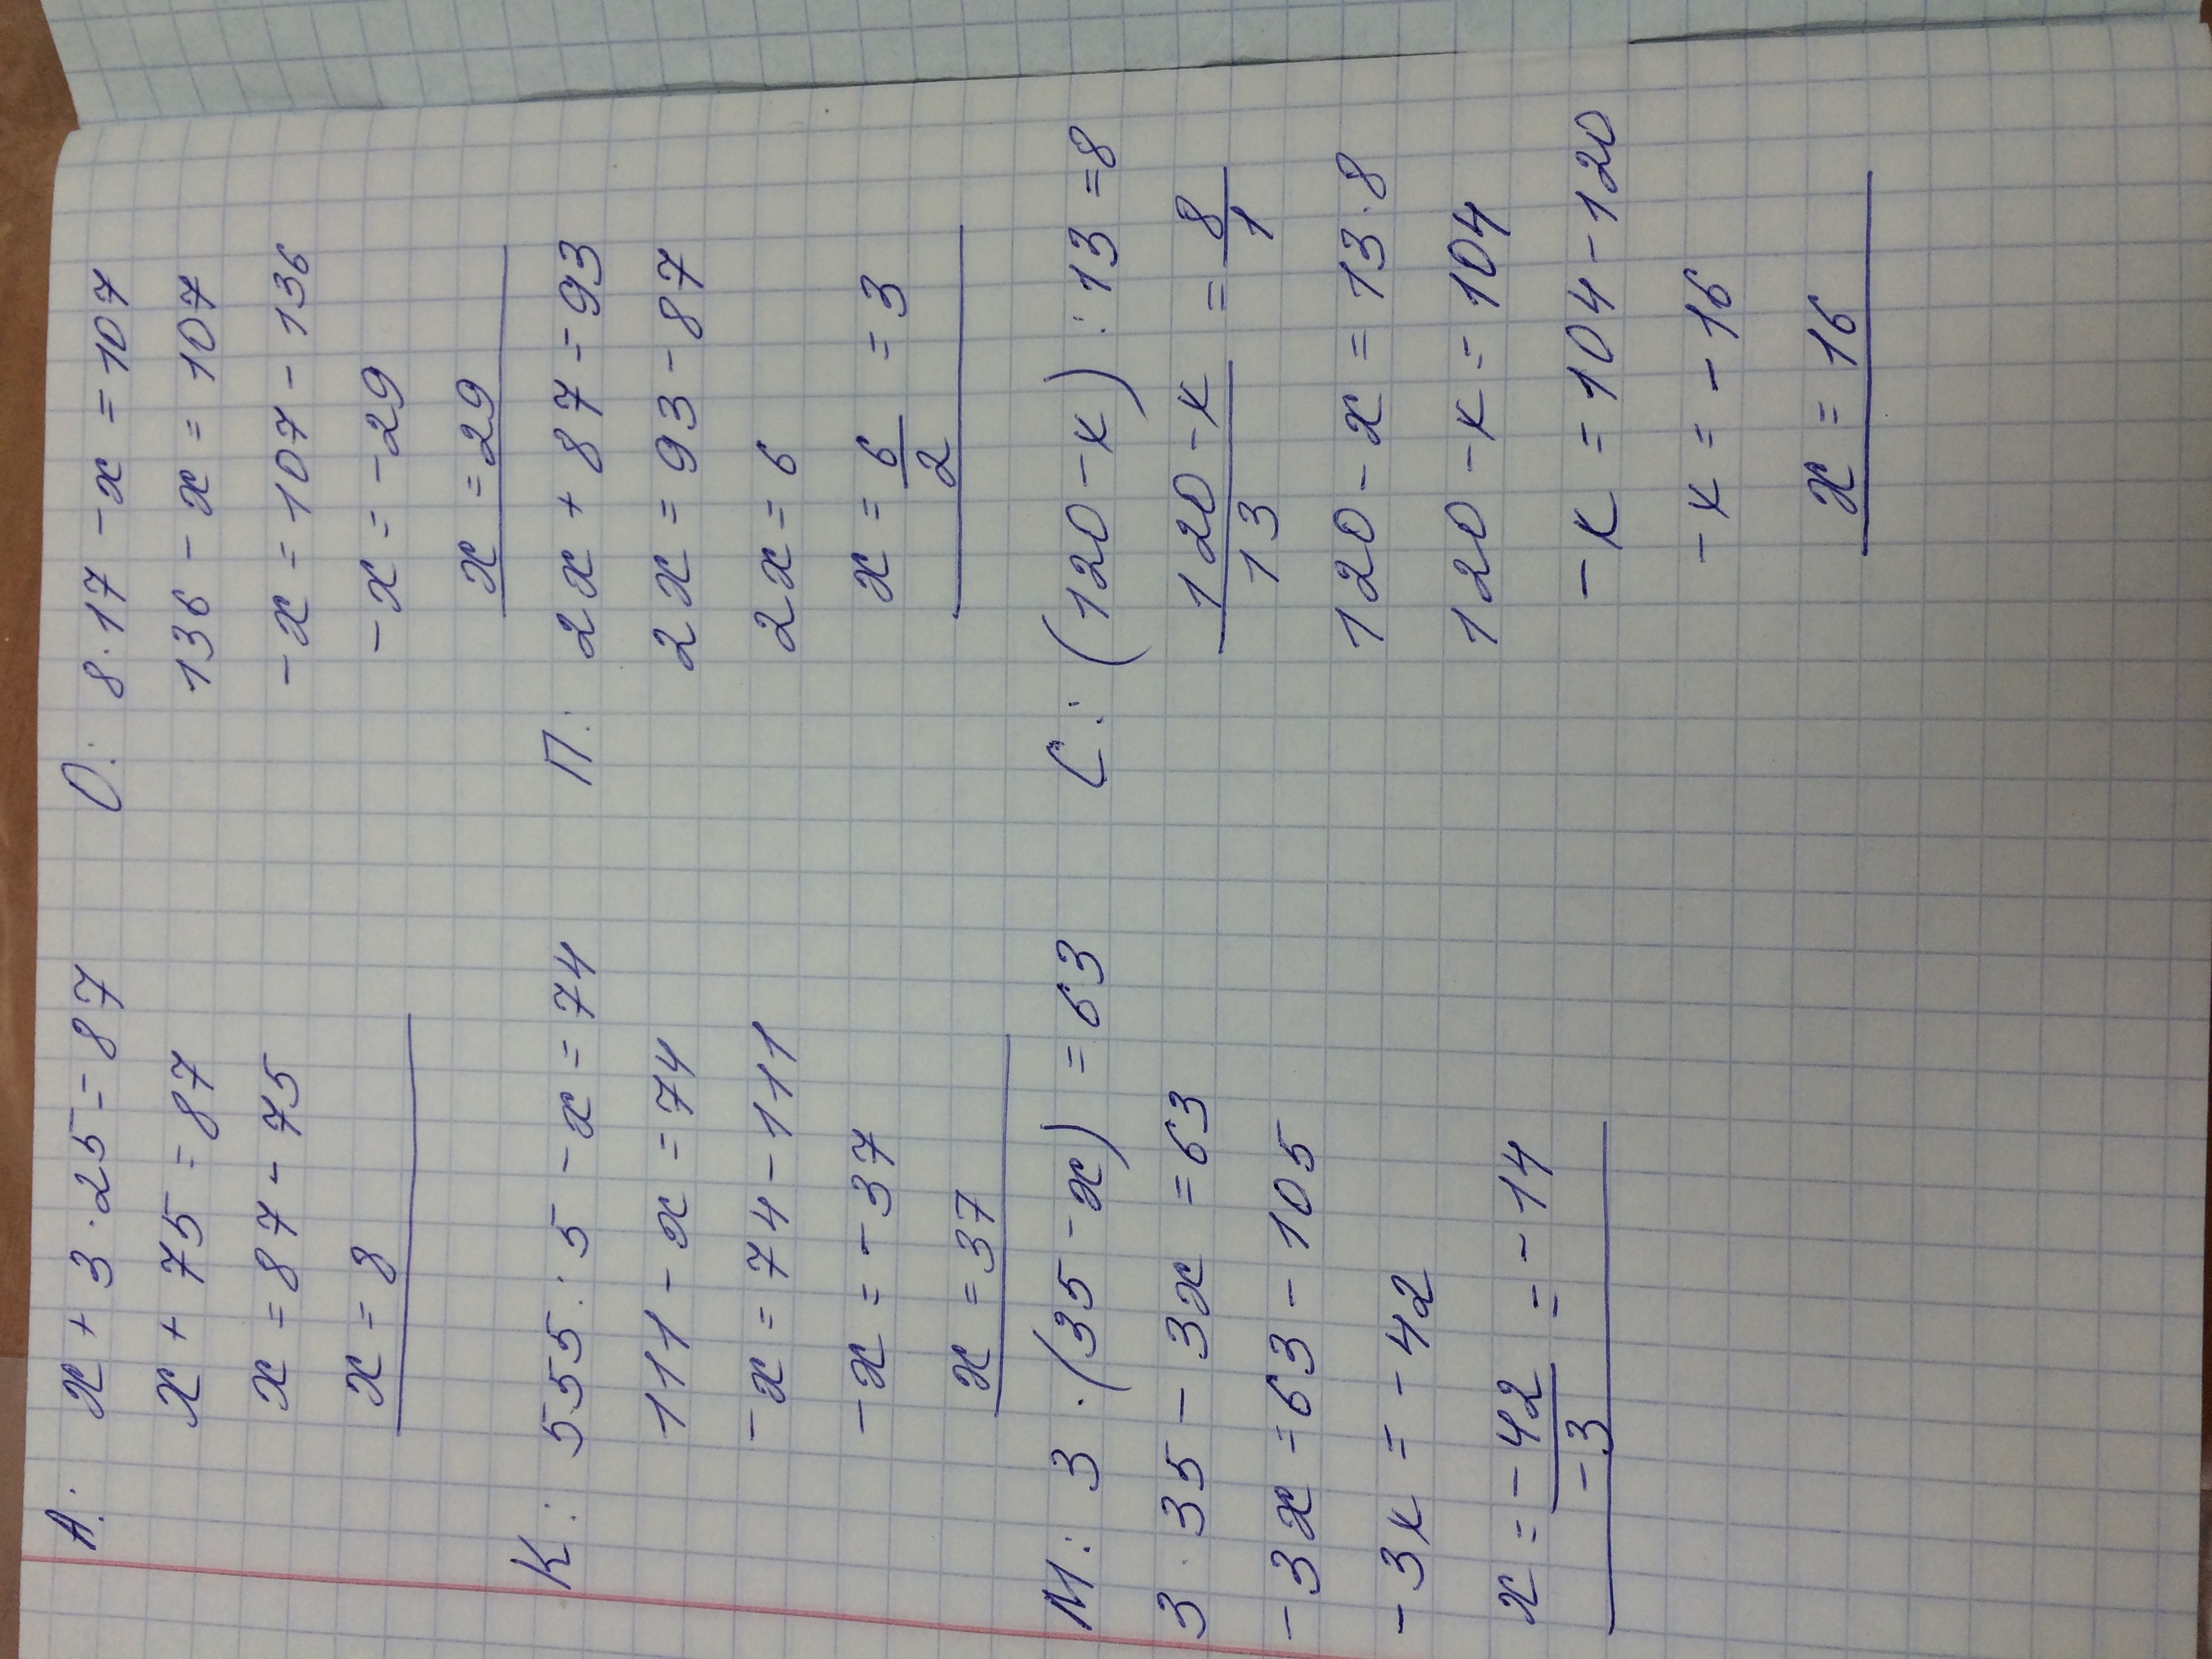 А: x + 3 · 25 = 87
x + 75 = 87
x = 87 - 75
x = 8
К: 555 : 5 - x = 74
111 - x = 74
-x = 74 - 111
-x = -37
x = 37
М: 3 · (35 - x) = 63
3 · 35 - 3x = 63
-3x = 63 - 105
-3x = -42
x = -42/-3 = -14
О: 8 · 17 - x = 107
136 - x = 107
-x = 107 - 136
-x = -29
x = 29
П: 2x + 87 = 93
2x = 93 - 87
2x = 6
x = 6/2 = 3
С: (120 - x) : 13 = 8
120 - x/13 = 8/1
120 - x = 13 · 8
120 - x = 104
-x = 104 - 120
-x = -16
x = 16